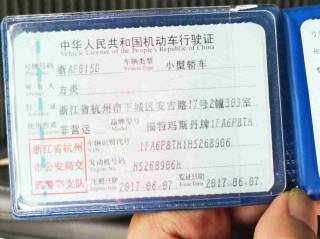 中华人民共和国机动车行驶证
Vehicle License of the People's Republic of China
号牌号码 浙AF0150 车辆类型 小型轿车
Plate No. Vehicle Type
方炎
浙江省杭州市下城区安吉路17号2幢303室
使用性质 非营运 品牌型号 福特玛斯丹牌1FA6P8TH
浙江省杭州市公安局交通警察支队
车辆识别代号
VIN
1FA6P8TH1H5268906
发动机号码 H5268906H
Engine No.
注册日期 2017-06-07 发证日期 2017-06-07